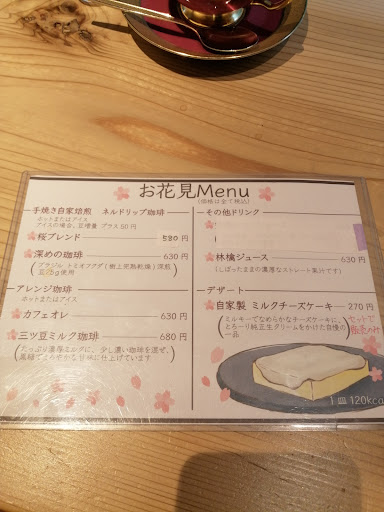 お花見Menu
(価格は全て税込)
手焼き自家焙煎 ネルドリップ珈琲
ホットまたはアイス
アイスの場合、豆増量 プラス50円
桜ブレンド 580円
深めの珈琲 630円
(ブラジル トミオフクダ(樹上完熟乾燥)深煎
g使用)
アレンジ珈琲
ホットまたはアイス
カフェオレ 630円
三ツ豆ミルク珈琲 680円
(たっぷり濃厚ミルクに、少し濃い珈琲を混ぜ、
黒糖でまろやかな甘味に仕上げています)
その他ドリンク
林檎ジュース 630円
(しぼったままの濃厚なストレート果汁です)
デザート
自家製 ミルクチーズケーキ 270円
(ミルキーでなめらかなチーズケーキに、
とろーり純正生クリームをかけた自慢の
一品)
セットで
販売のみ
1皿 120kca